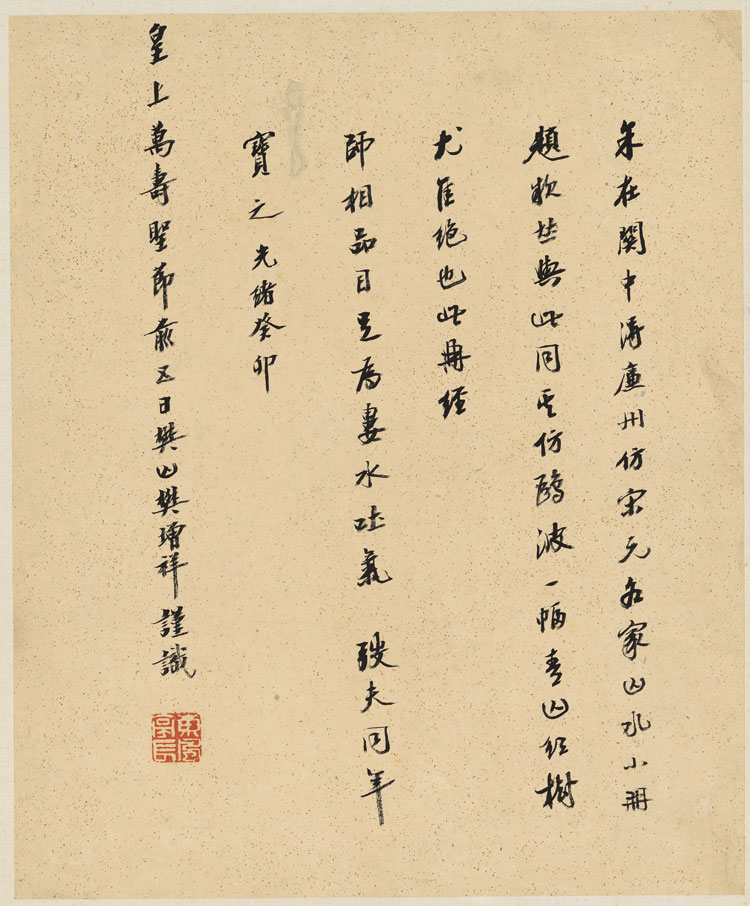 余在關中得廉州仿宋元名家山水小冊
題款皆與此同其仿鷗波一幅青山紅樹
尤佳絕也此冊經
師相品目足為婁水吐氣 弢夫同年
寶之光緒癸卯
皇上萬壽聖節前五日樊山樊增祥謹識